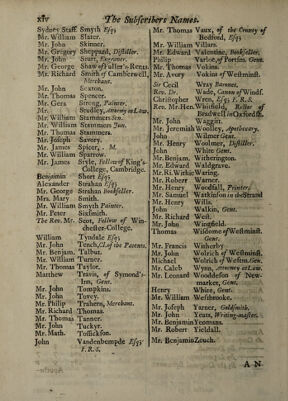 xiv The Subscribers Names.
Sydney Staff. Smyth Esq;
Mr. William Slater.
Mr. John Skinner.
Mr. Gregory Sheppard, Distiller.
Mr. John Sturt, Engraver.
Mr. George Shaw of Fuller's Rents.
Mr. Richard Smith of Camberwell, Merchant.
Mr. John Sexton.
Mr. Thomas Spencer.
Mr. Gera Strong, Painter.
Mr. Studley, Attorney in Law.
Mr. William Stammers Sen.
Mr. William Stammers Jun.
Mr. Thomas Stammers.
Mr. Joseph Savery.
Mr. James Spicer, M
Mr. William Sparrow.
Mr. James Style, Fellow of King's-College, Cambridge.
Benjamin Short Esq;
Alexander Strahan Esq;
Mr. George Strahan Bookseller.
Mrs. Mary Smith.
Mr. William Smyth Painter.
Mr. Peter Sixsmith.
The Rev. Mr. Scot, Fellow of Winchester-College.
William Tyndale Esq;
Mr. John Tench, Cl. of the Patents.
Mr. Benjam. Talbut.
Mr. William Turner.
Mr. Thomas Taylor.
Matthew Travis, of Symond's-Inn, Gent.
Mr. John Tompkins.
Mr. John Tovey.
Mr. Philip Trahern, Merchant.
Mr. Richard Thomas.
Mr. Thomas Tanner.
Mr. John Tuckyr.
Mr. Math. Tollickson.
John Vandenbempde Esq; F.R.S.
Mr. Thomas Vaux, of the County of Bedford, Esq;
Mr. William Villars.
Mr. Edward Valentine, Bookseller.
Philip Varloe, of Portsm. Gent.
Mr. Thomas Vokins.
Mr. Avory Vokins of Westminst.
Sir Cecil Wray Baronet.
Rev. Dr. Wade, Canon of Winds.
Christopher Wren, Esq; F.R.S.
Rev. Mr. Hen. Whitfield, Rector of Bradwell in Oxfordsh.
Mr. John Waggit.
Mr. Jeremiah Woolley, Apothecary.
John Wilmer Gent.
Mr. Henry Woolmer, Distiller.
John White Gent.
Mr. Benjam. Witherington.
Mr. Edward Waldgrave.
Mr. Ri. Wirkie Waring.
Mr. Robert Warner.
Mr. Henry Woodfall, Printer.
Mr. Samuel Watkinson in the Strand
Mr. Henry Willis.
John Walkin, Gent.
Mr. Richard West.
Mr. John Wingfield.
Thomas Wisdome of Westminst. Gent.
Mr. Francis Witherby
Mr. John Wolrich of Westminst.
Michael Wolrich of Westm. Gen.
Mr. Caleb Wynn, Attorney at Law.
Mr. Leonard Wooddeson of Newmarket, Gent.
Henry White, Gent.
Mr. William Westbrooke.
Mr. Joseph Yarner, Goldsmith.
Mr. John Yeats, Writing-master.
Mr. Benjamin Yeomans.
Mr. Robert Yieldall.
Mr. Benjamin Zouch.
A N